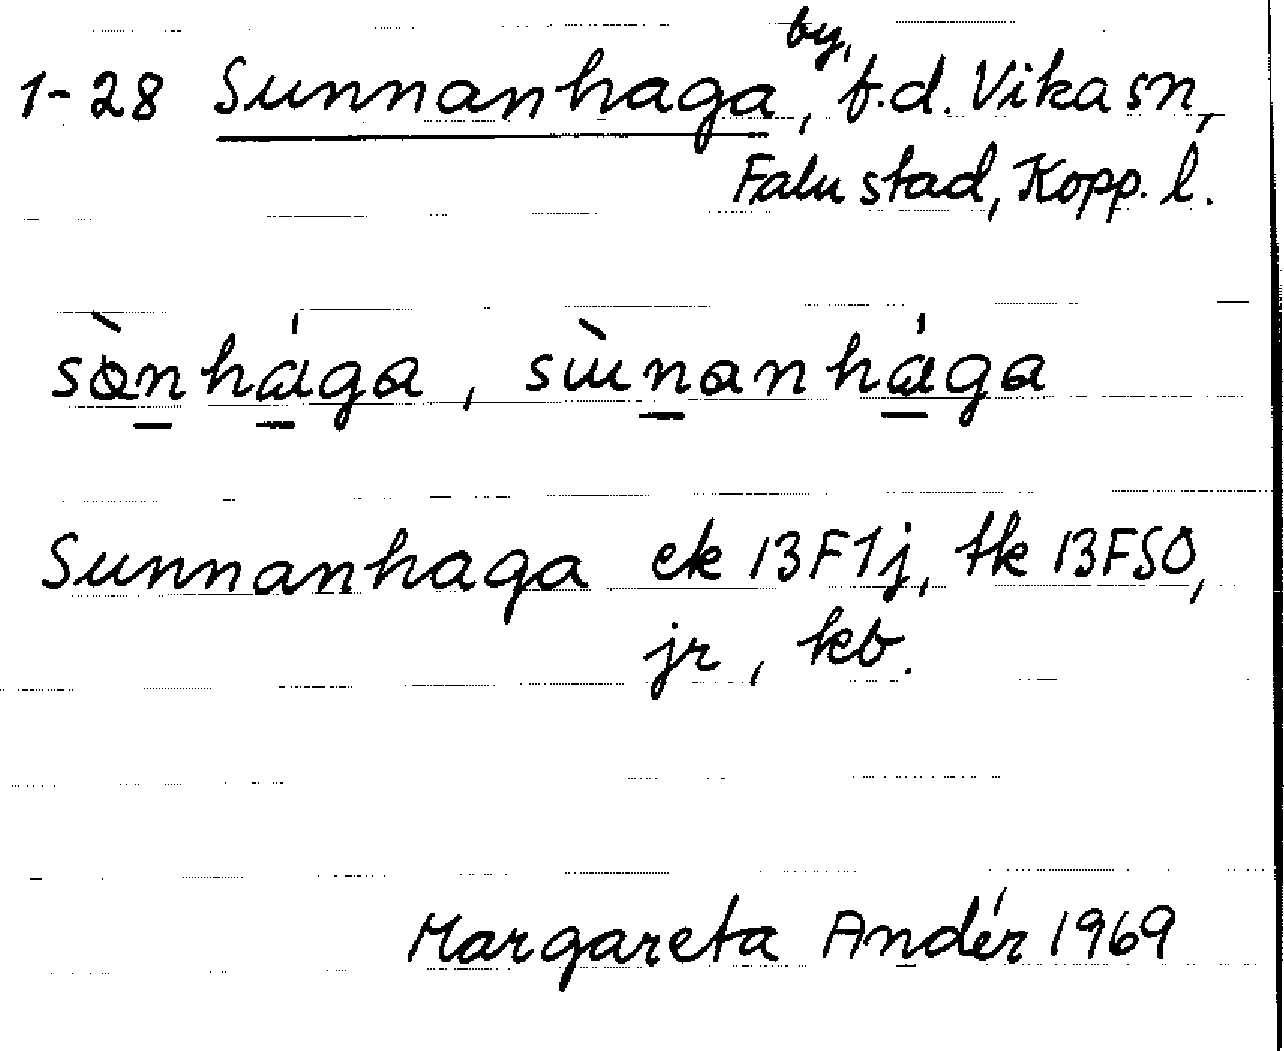 1-28 Sunnanhaga, by, f.d. Vika sn,
Falu stad, Kopp. l.
sɑ̀n̲há̲ga, sɯ̀n̲anhá̲ga
Sunnanhaga ek 13F1j, tk 13FSO,
jr, kb.
Margareta Andér 1969